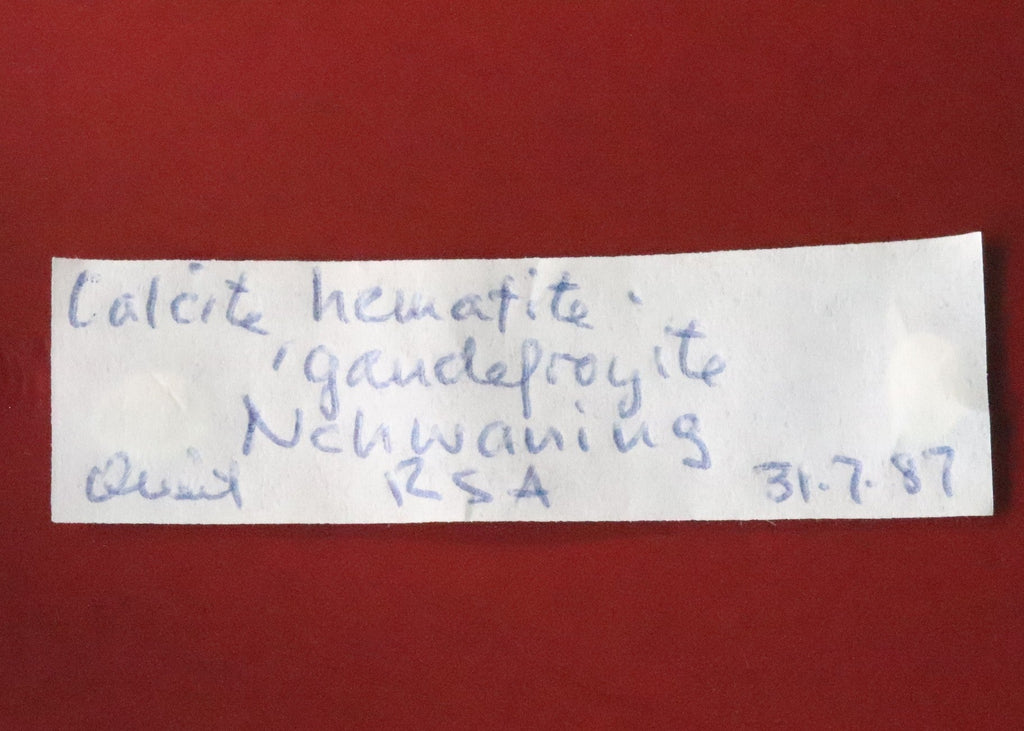 Calcite hematite.
'gaudefroyite
Nchwaning
RSA 31.7.87